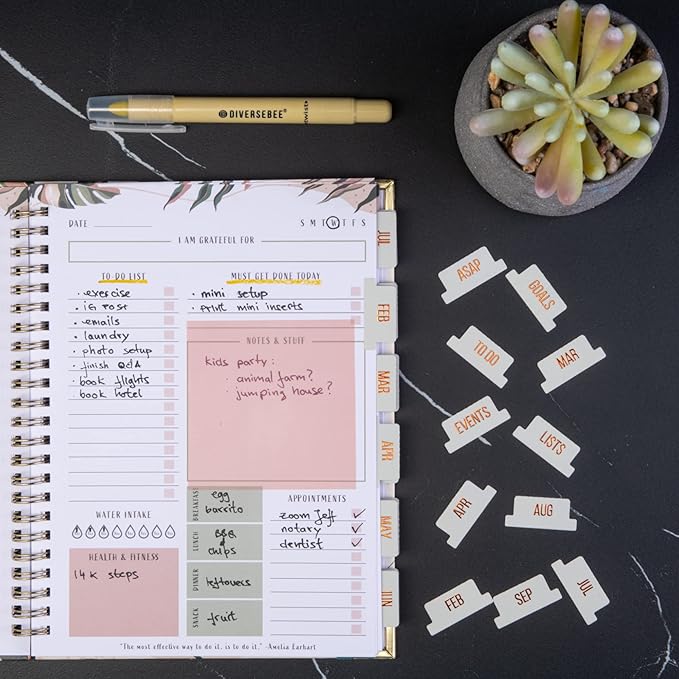 DIVERSEBEE® twist
DATE
S M T W T F S
I AM GRATEFUL FOR
TO-DO LIST
exercise
IG Post
emails
laundry
photo setup
finish Q&A
book flights
book hotel
MUST GET DONE TODAY
mini setup
print mini inserts
NOTES & STUFF
kids party:
animal farm?
jumping house?
WATER INTAKE
HEALTH & FITNESS
14K steps
BREAKFAST
egg
burrito
LUNCH
BBQ
chips
DINNER
leftovers
SNACK
fruit
APPOINTMENTS
zoom Jeff
notary
dentist
"The most effective way to do it, is to do it." -Amelia Earhart
JUL
FEB
MAR
APR
MAY
JUN
ASAP
GOALS
TO DO
MAR
EVENTS
LISTS
APR
AUG
FEB
SEP
JUL